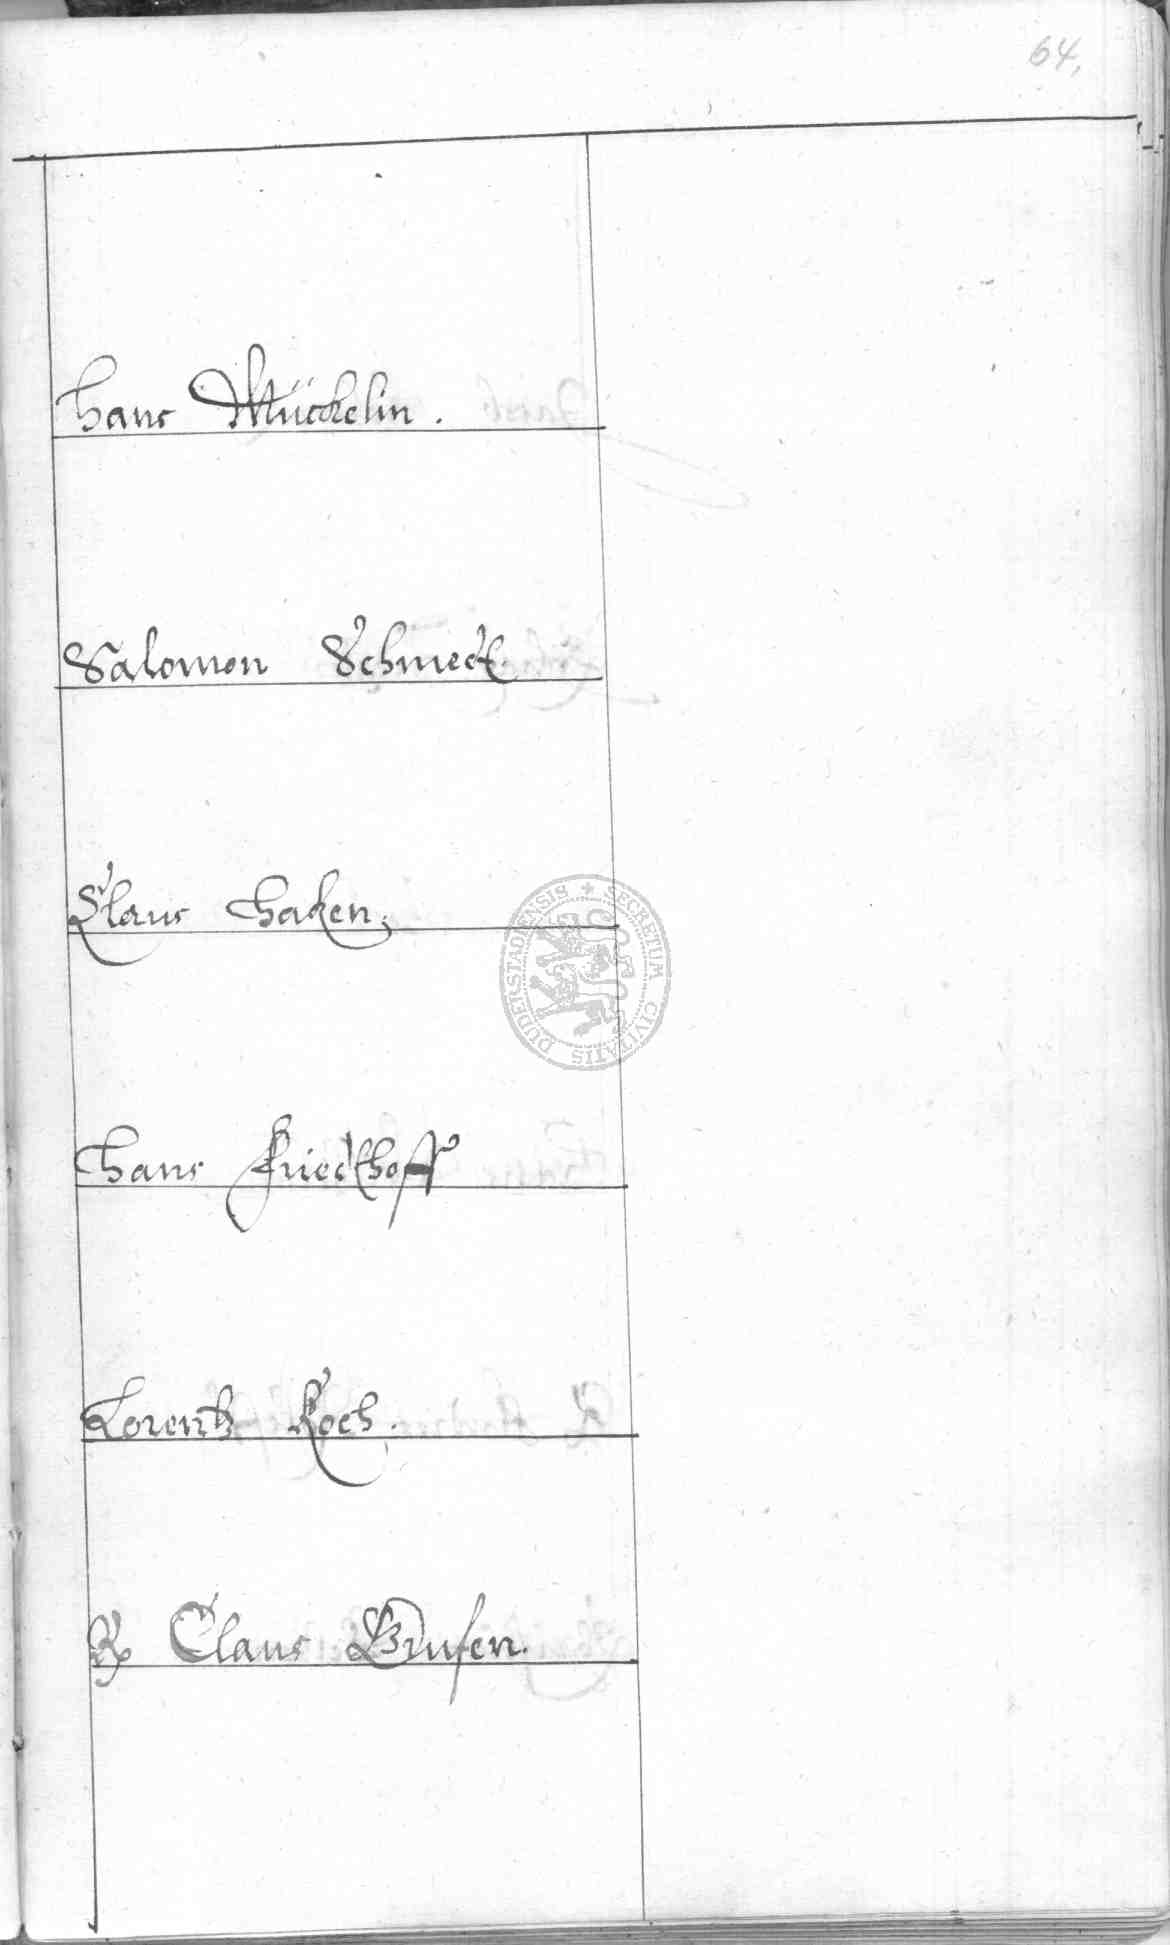 64,
Hans Mückelin.
Salomon Schmeck.
Claus Haken.
Hans Frieckhoff
Lorentz Koch.
R Claus Brusen.
SECRETUM CIVITATIS DUDERSTADIENSIS